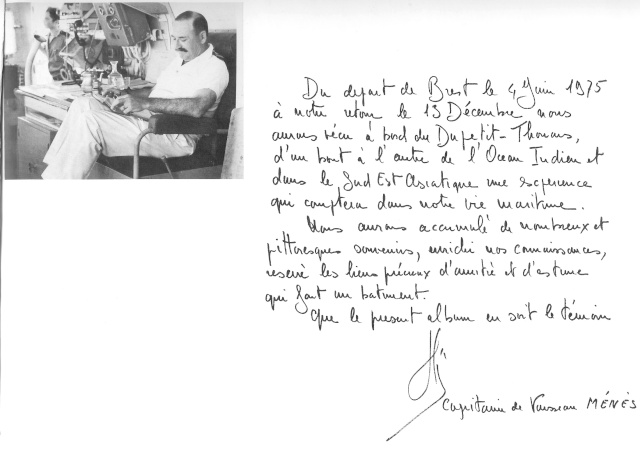 Du depart de Brest le 4 Juin 1975
à notre retour le 13 Décembre nous
aurons vécu à bord du Dupetit-Thouars,
d'un bout à l'autre de l'Ocean Indien et
dans le Sud Est Asiatique une experience
qui comptera dans notre vie maritime.
Nous aurons accumulé de nombreux et
pittoresques souvenirs, enrichi nos connaissances,
reserré les liens précieux d'amitié et d'estime
qui font un batiment.
Que le present album en soit le témoin
Capitaine de Vaisseau MÉNÈS